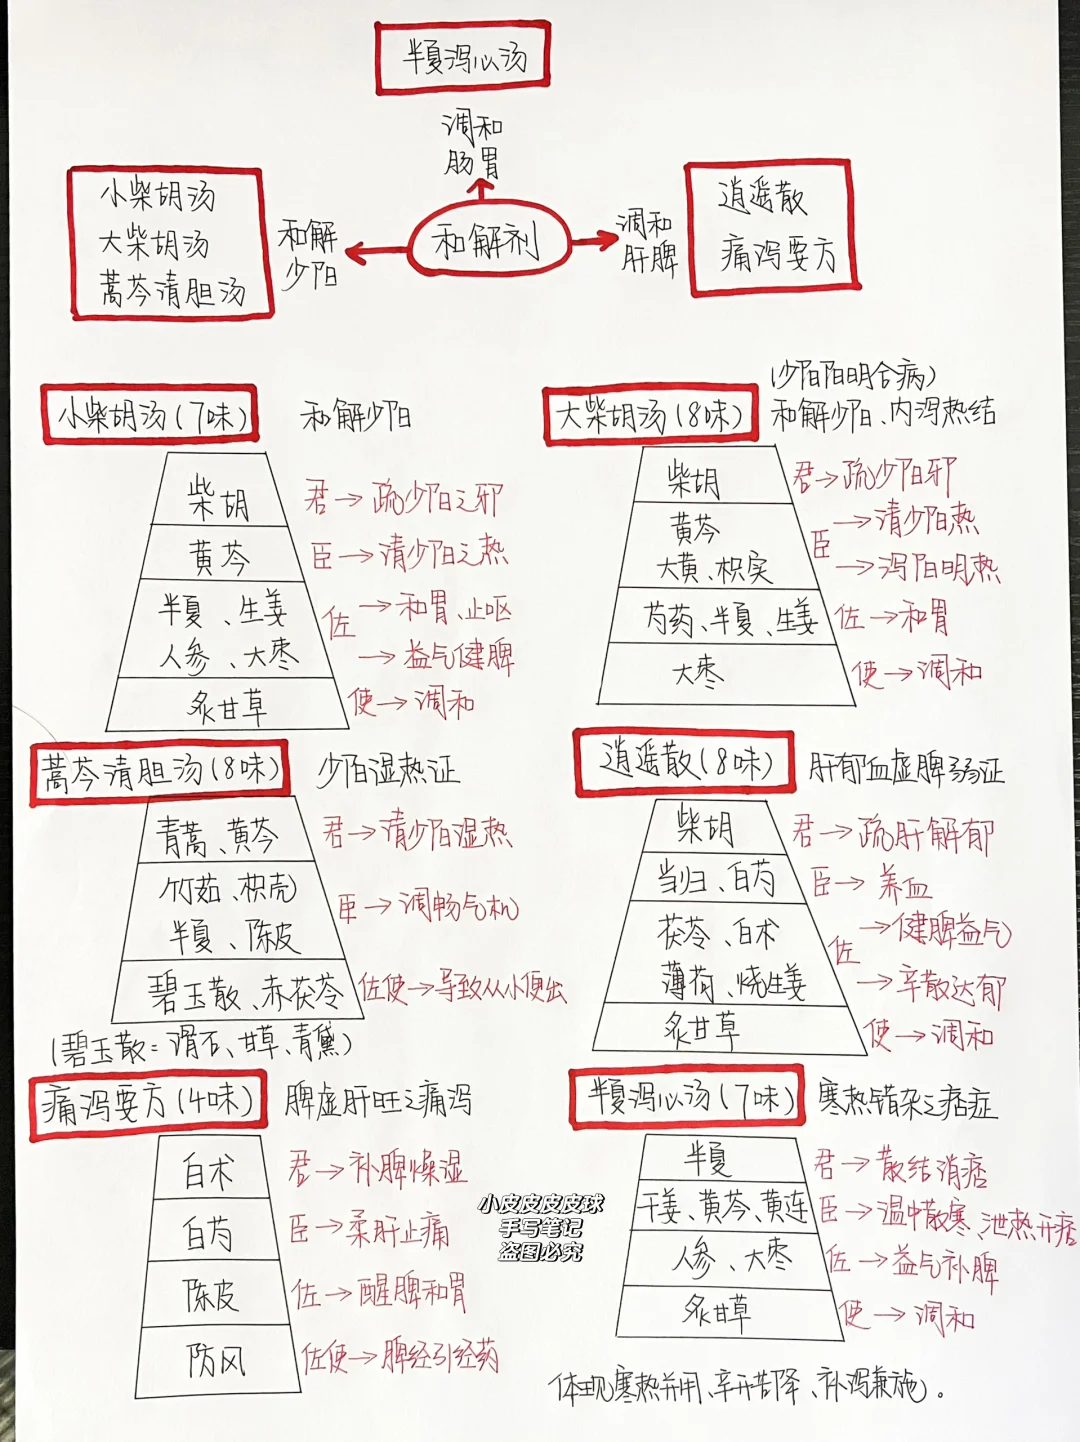 半夏泻心汤
调和
肠胃
小柴胡汤
大柴胡汤
蒿芩清胆汤
和解
少阳
和解剂
调和
肝脾
逍遥散
痛泻要方
小柴胡汤(7味)
和解少阳
柴胡
君→疏少阳之邪
黄芩
臣→清少阳之热
半夏、生姜
人参、大枣
佐→和胃、止呕
→益气健脾
炙甘草
使→调和
大柴胡汤(8味)
(少阳阳明合病)
和解少阳、内泻热结
柴胡
君→疏少阳邪
黄芩
大黄、枳实
臣→清少阳热
→泻阳明热
芍药、半夏、生姜
佐→和胃
大枣
使→调和
蒿芩清胆汤(8味)
少阳湿热证
青蒿、黄芩
君→清少阳湿热
竹茹、枳壳
半夏、陈皮
臣→调畅气机
碧玉散、赤茯苓
佐使→导致从小便出
(碧玉散=滑石、甘草、青黛)
逍遥散(8味)
肝郁血虚脾弱证
柴胡
君→疏肝解郁
当归、白芍
臣→养血
茯苓、白术
薄荷、烧生姜
佐→健脾益气
→辛散达郁
炙甘草
使→调和
痛泻要方(4味)
脾虚肝旺之痛泻
白术
君→补脾燥湿
白芍
臣→柔肝止痛
陈皮
佐→醒脾和胃
防风
佐使→脾经引经药
小皮皮皮皮球
手写笔记
盗图必究
半夏泻心汤(7味)
寒热错杂之痞症
半夏
君→散结消痞
干姜、黄芩、黄连
臣→温中散寒、泄热开痞
人参、大枣
佐→益气补脾
炙甘草
使→调和
体现寒热并用、辛开苦降、补泻兼施)。